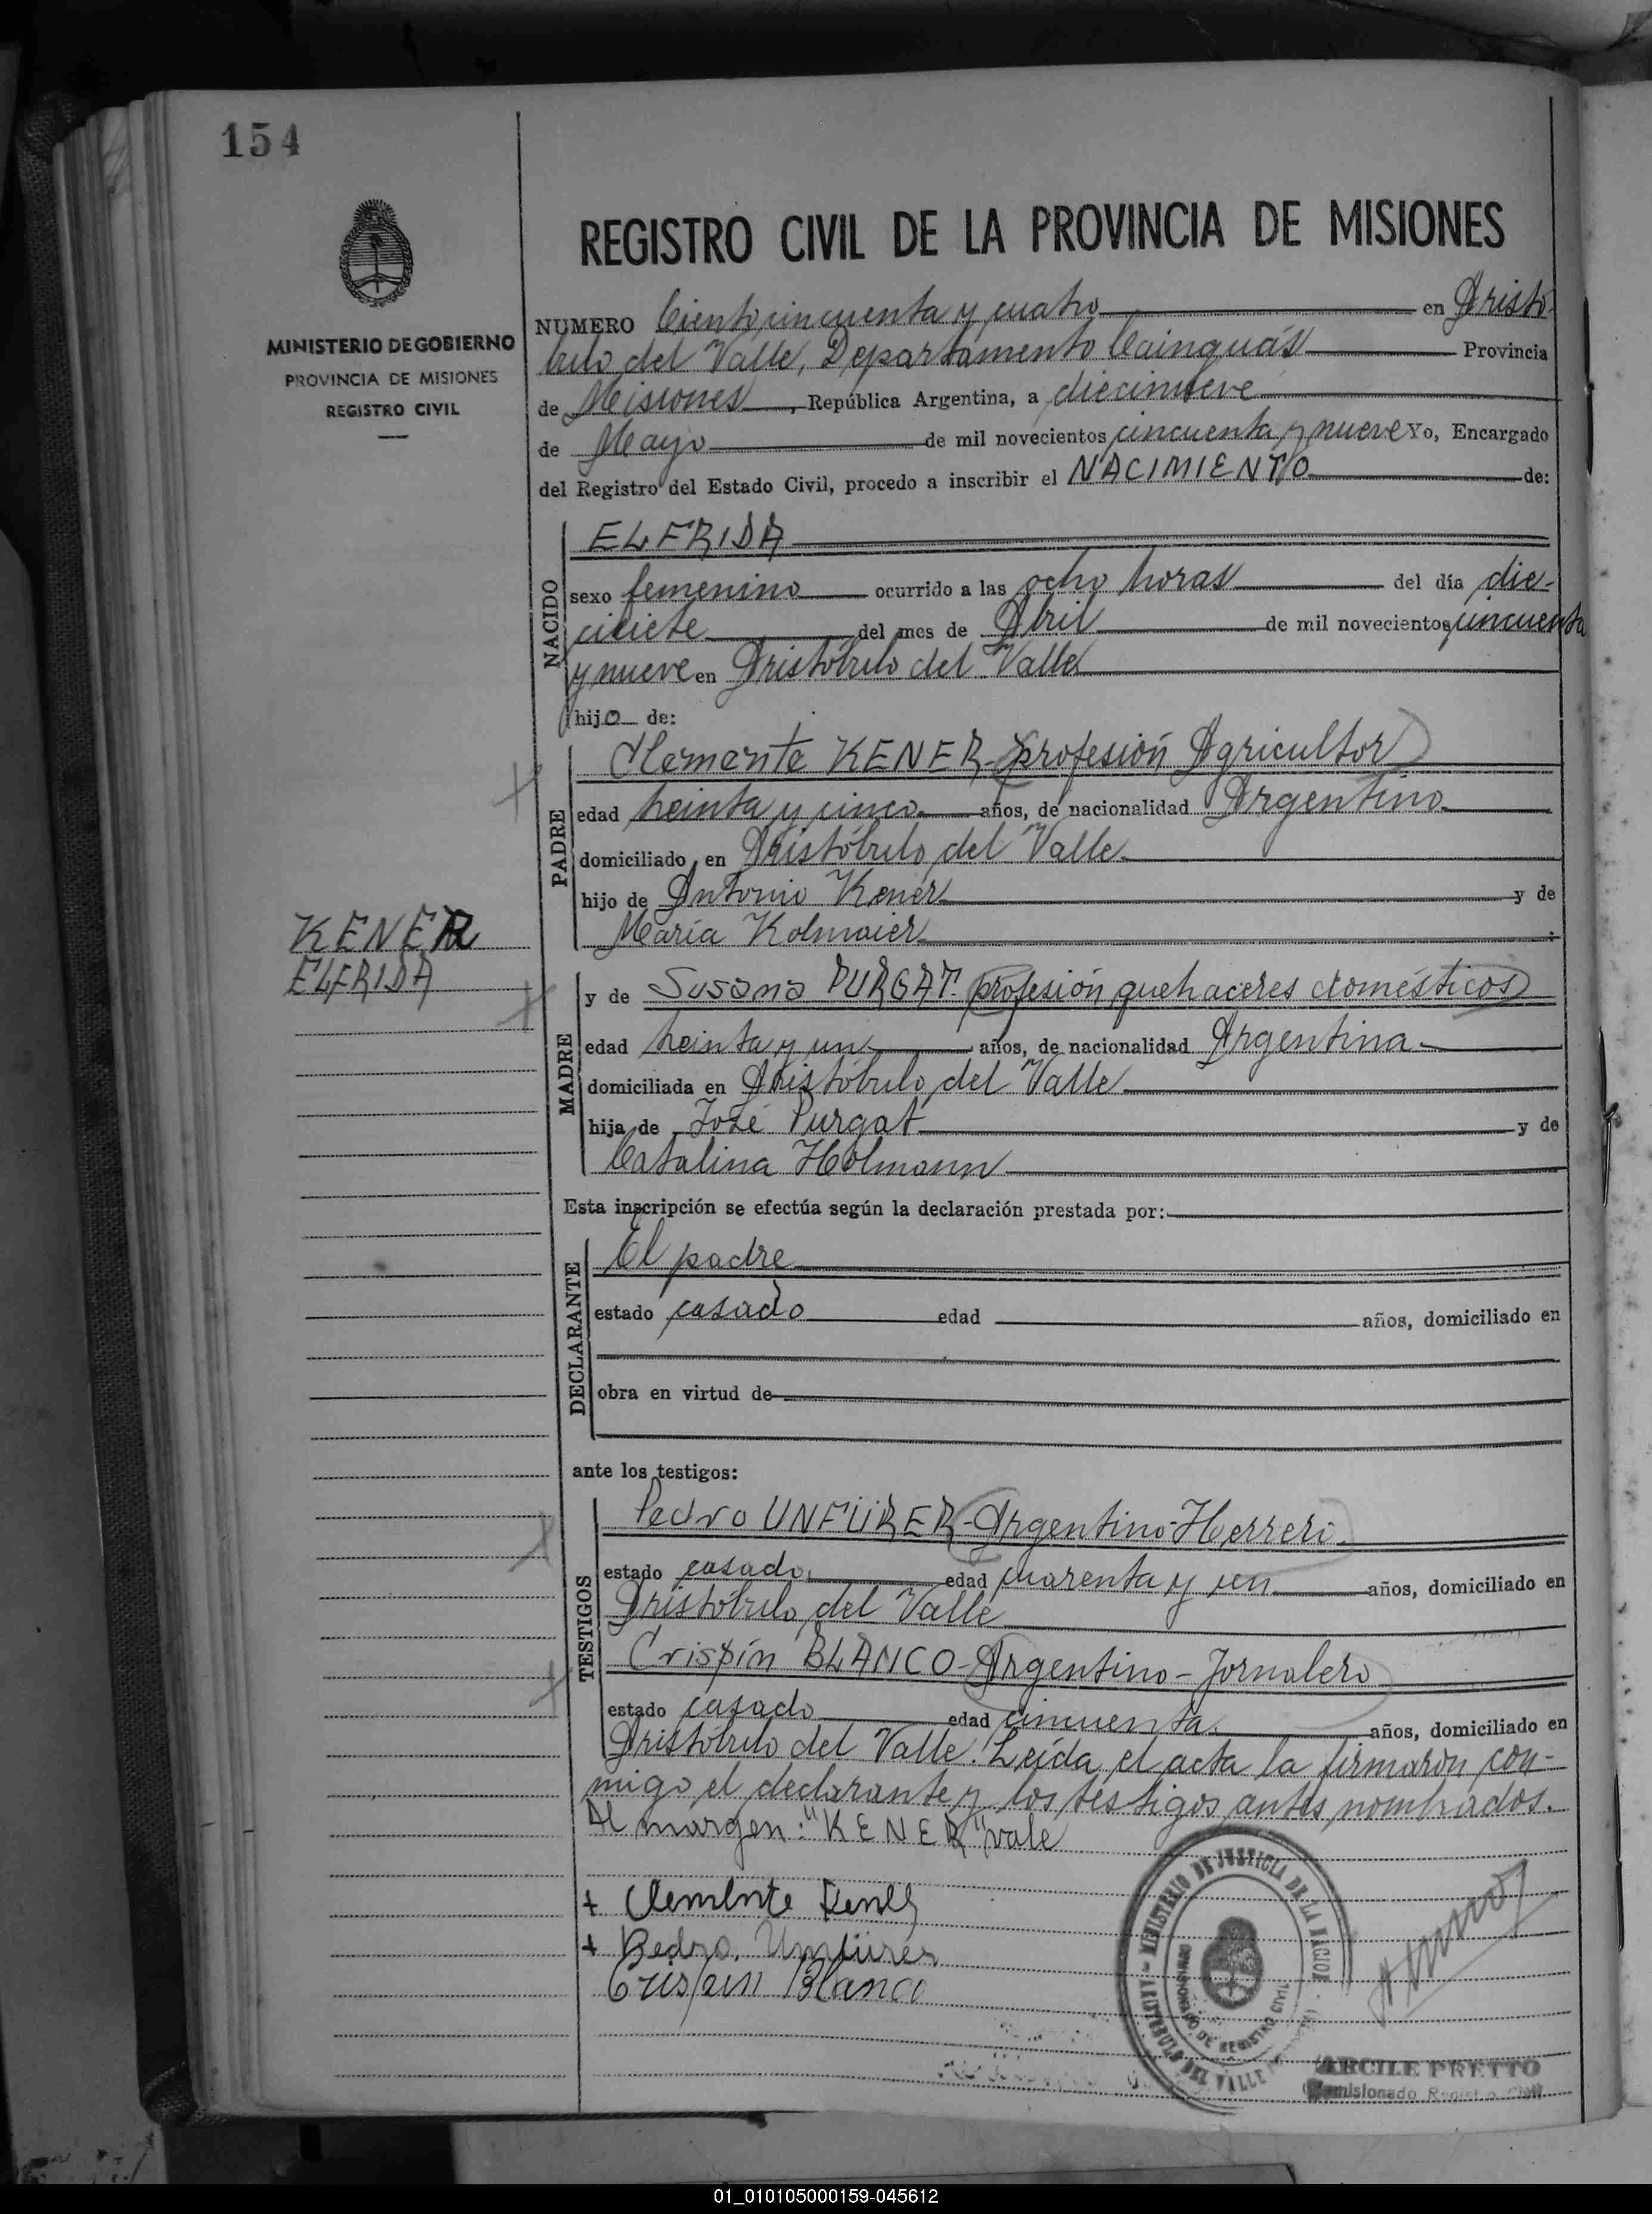 154
REGISTRO CIVIL DE LA PROVINCIA DE MISIONES
MINISTERIO DE GOBIERNO
PROVINCIA DE MISIONES
REGISTRO CIVIL
NUMERO Ciento cincuenta y cuatro en Aristó-
bulo del Valle, Departamento Cainguás Provincia
de Misiones, República Argentina, a diecinueve
de Mayo de mil novecientos cincuenta y nueve Yo, Encargado
del Registro del Estado Civil, procedo a inscribir el NACIMIENTO de:
NACIDO
ELFRIDA
sexo femenino ocurrido a las ocho horas del día die-
cisiete del mes de Abril de mil novecientos cincuenta
y nueve en Aristóbulo del Valle
hijo de:
PADRE
Clemente KENER - profesión Agricultor
edad treinta y cinco años, de nacionalidad Argentino
domiciliado en Aristóbulo del Valle
hijo de Antonio Kener y de
María Kolmaier
KENER
ELFRIDA
MADRE
y de Susana PURGAT - profesión quehaceres domésticos
edad treinta y un años, de nacionalidad Argentina
domiciliada en Aristóbulo del Valle
hija de José Purgat y de
Catalina Holmann
Esta inscripción se efectúa según la declaración prestada por:
DECLARANTE
El padre
estado casado edad años, domiciliado en
obra en virtud de
ante los testigos:
TESTIGOS
Pedro UNFÜRER - Argentino - Herrero
estado casado edad cuarenta y un años, domiciliado en
Aristóbulo del Valle
Crispín BLANCO - Argentino - Jornalero
estado casado edad cincuenta años, domiciliado en
Aristóbulo del Valle. Leída el acta la firmaron con-
migo el declarante y los testigos antes nombrados.
Al margen: "KENER" vale
+ Clemente Kener
+ Pedro Unfürer
Crispin Blanco
MINISTERIO DE JUSTICIA DE LA NACION - ARISTOBULO DEL VALLE
DE REGISTRO CIVIL
ARCILE PRETTO
Comisionado Registro Civil
01_010105000159-045612